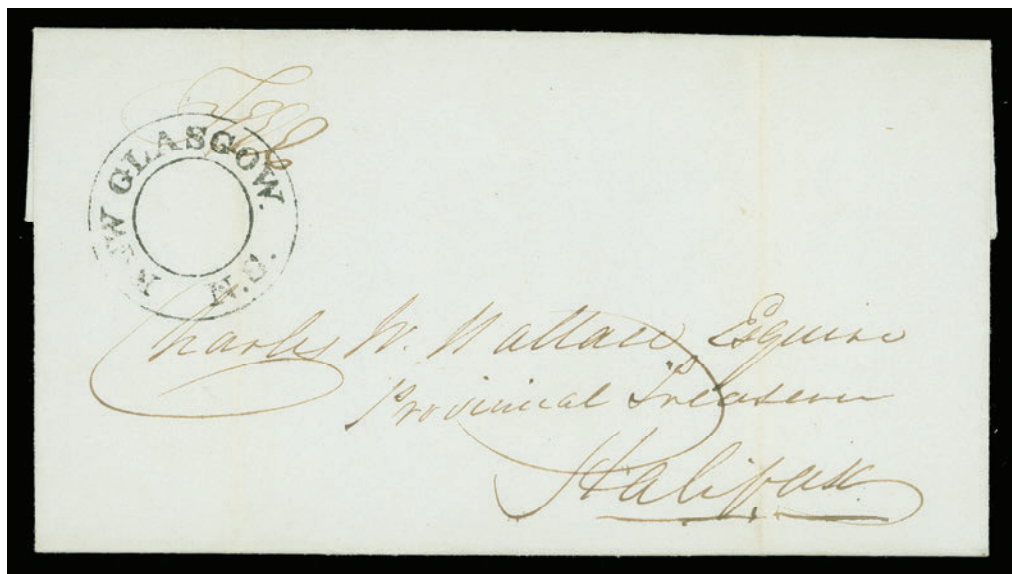 NEW GLASGOW. N.S.
Charles W. Wallace Esquire
Provincial Treasurer
Halifax